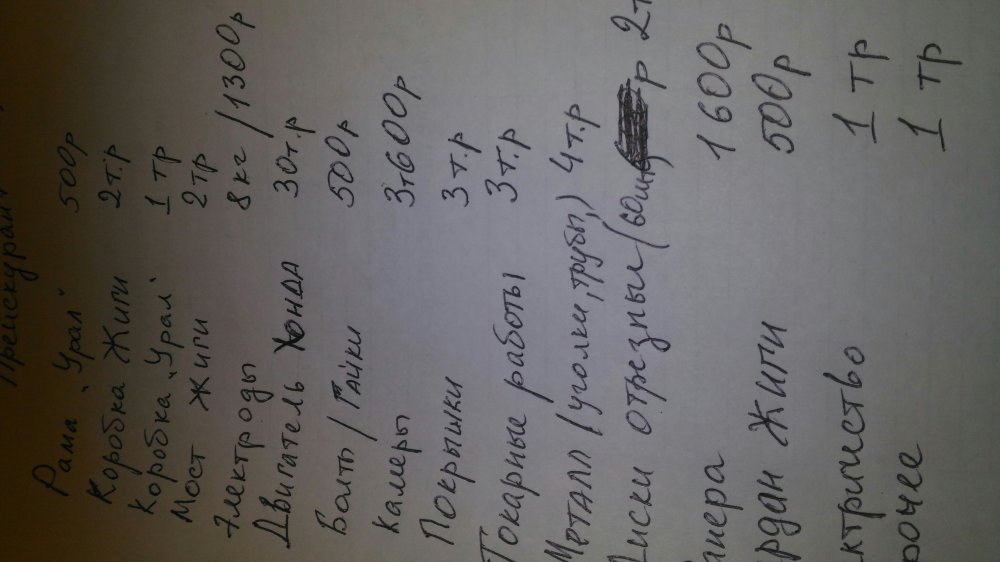 Прейскурант
Рама „Урал" 500р
Коробка Жиги 2т.р
Коробка „Урал" 1 тр
Мост Жиги 2тр
Электроды 8кг / 1300р
Двигатель ХОНДА 30т.р
Болты / Гайки 500р
Камеры 3т600р
Покрышки 3 т.р
Токарные работы 3 т.р
Металл (уголки, трубы,) 4т.р
Диски отрезные (60шт) р 2т
анера 1600р
рдан Жиги 500р
ктричество 1 тр
рочее 1 тр